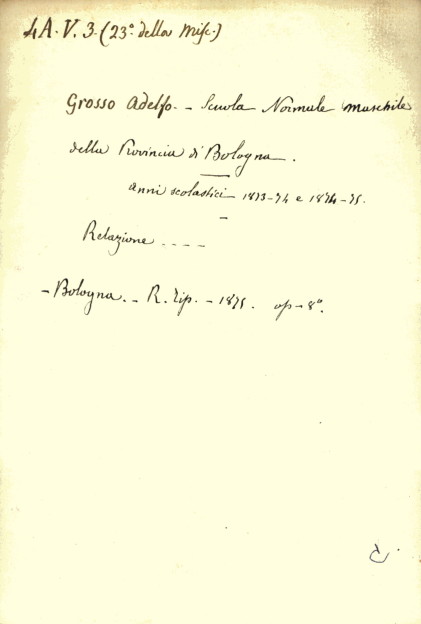 4A. V. 3. (23° della Misc.)
Grosso Adelfo. - Scuola Normale maschile
della Provincia di Bologna.
Anni scolastici 1873-74 e 1874-75.
Relazione ----
- Bologna. - R. Tip. - 1875. op - 8°.